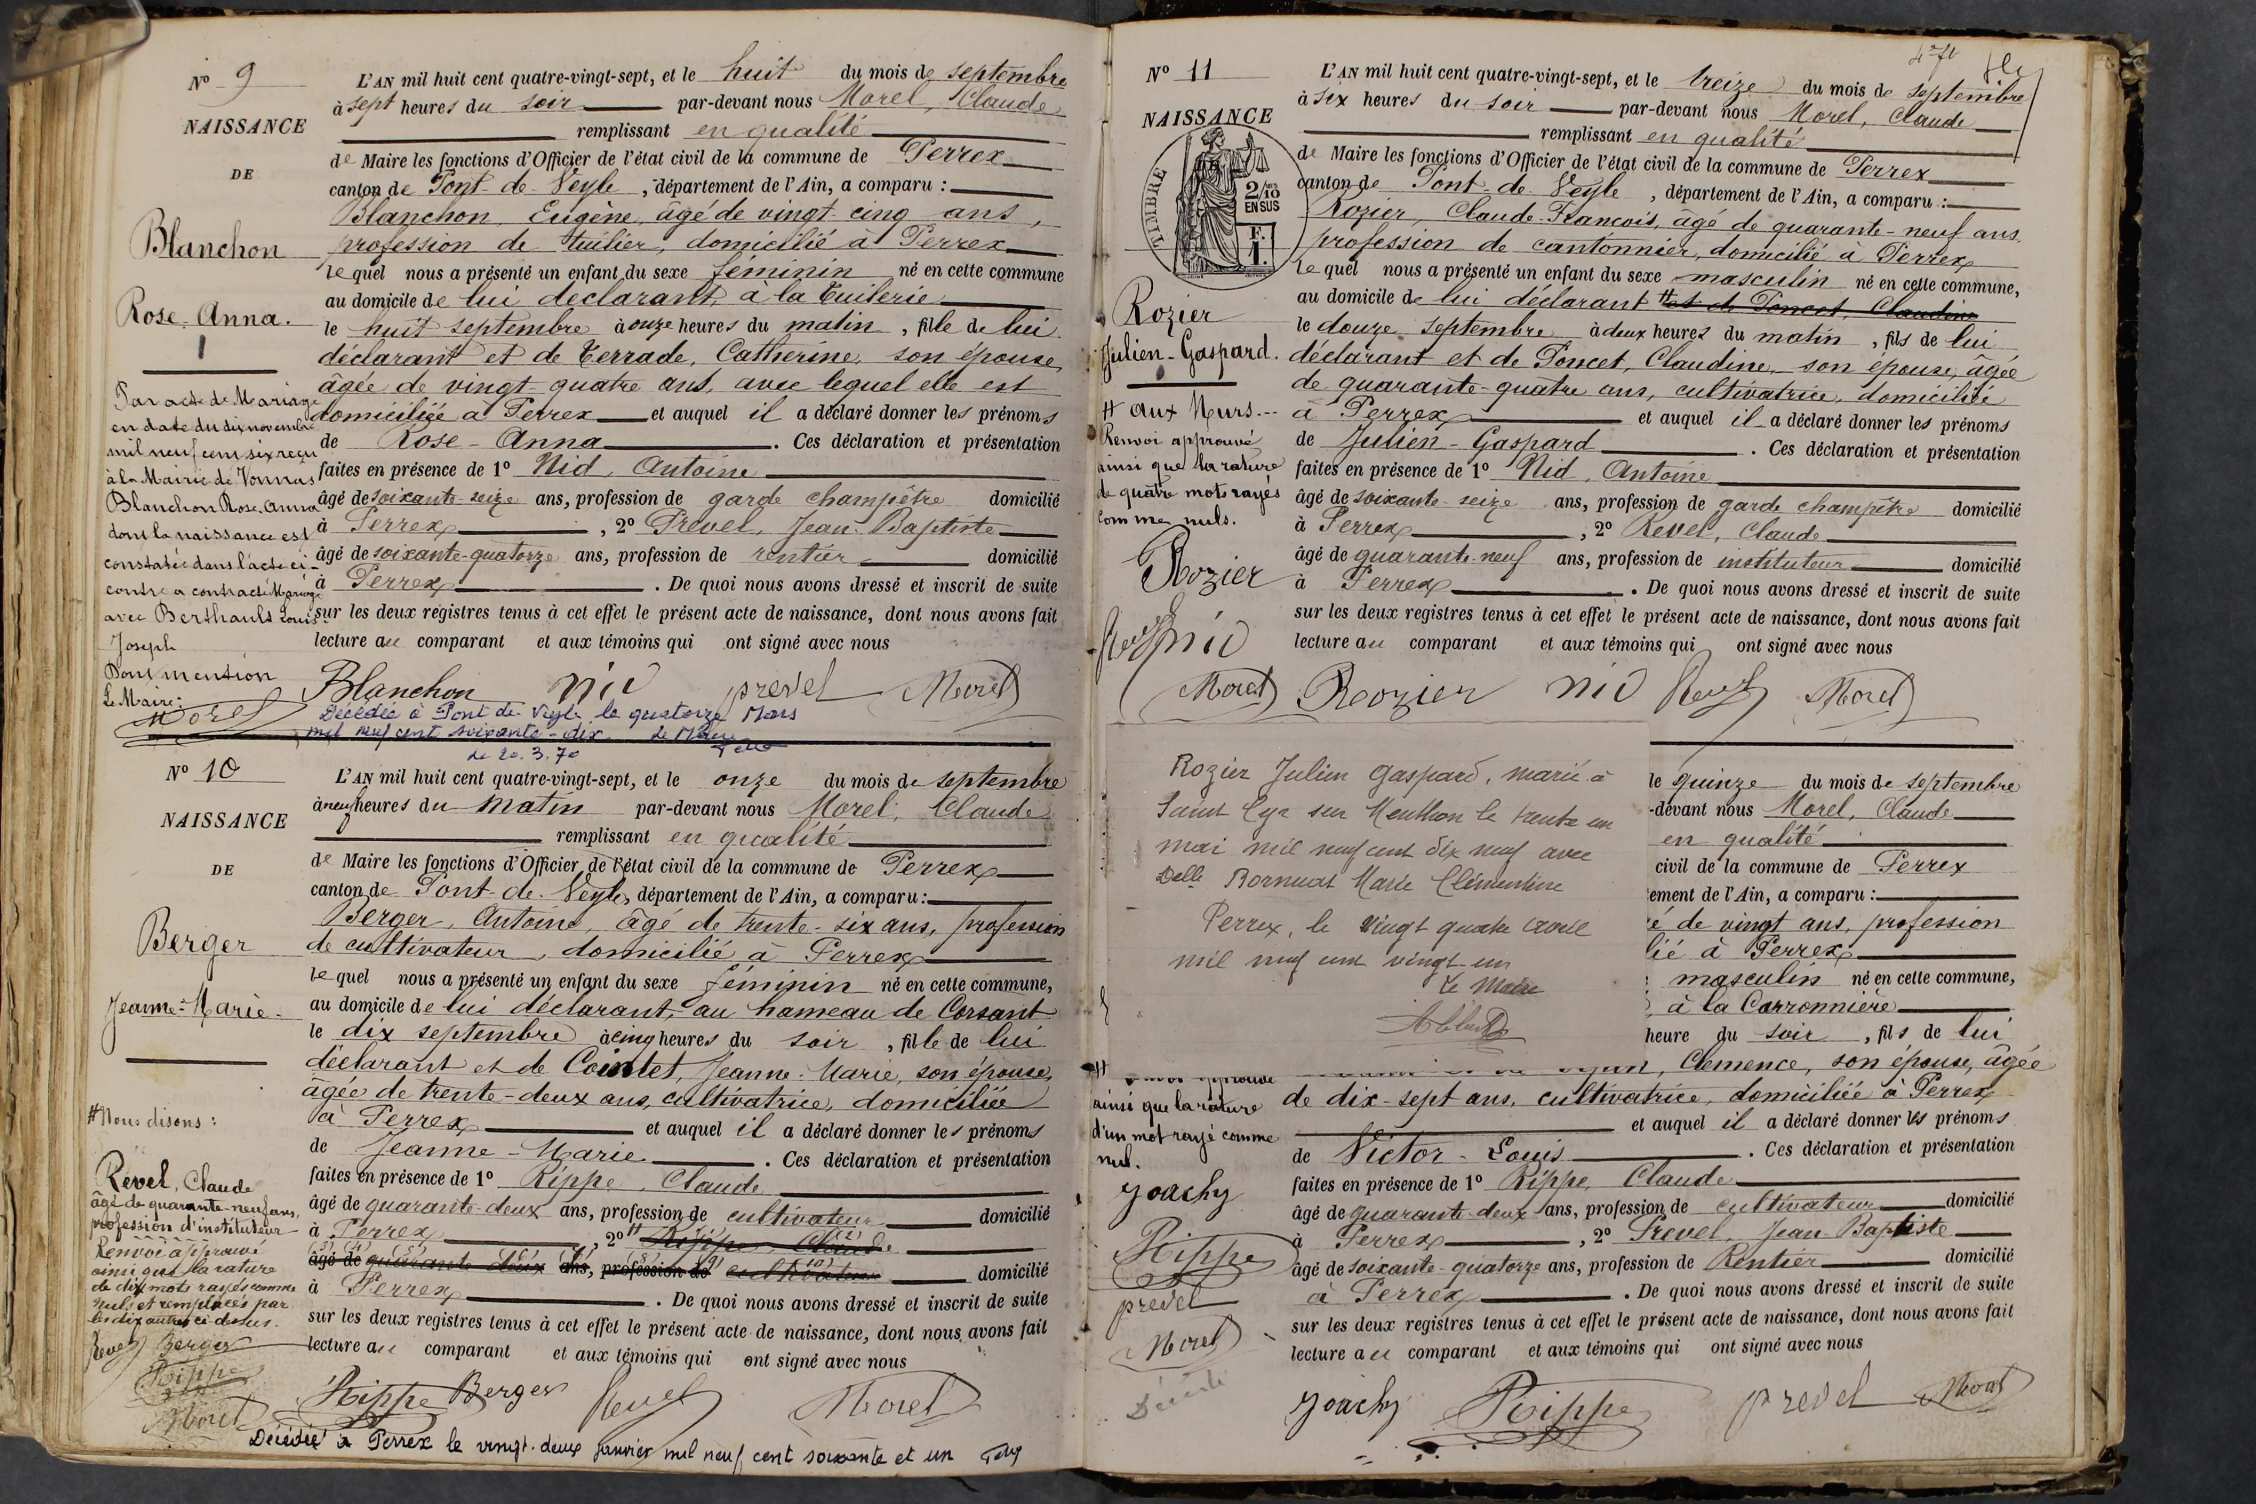 Nº 9
NAISSANCE
DE
Blanchon
Rose-Anna.
1
Par acte de Mariage
en date du six novembre
mil neuf cent six reçu
à la Mairie de Vonnas
Blanchon Rose-Anna
dont la naissance est
constatée dans l'acte ci-
contre a contracté Mariage
avec Berthault Louis
Joseph
Dont mention
Le Maire:
Morel
L'AN mil huit cent quatre-vingt-sept, et le huit du mois de septembre
à sept heures du soir par-devant nous Morel, Claude
remplissant en qualité
de Maire les fonctions d'Officier de l'état civil de la commune de Perrex
canton de Pont-de-Veyle, département de l'Ain, a comparu :
Blanchon, Eugène, âgé de vingt-cinq ans,
profession de tuilier, domicilié à Perrex
lequel nous a présenté un enfant du sexe féminin né en cette commune
au domicile de lui déclarant, à la Tuilerie
le huit septembre à onze heures du matin, fille de lui
déclarant et de Terrade, Catherine, son épouse,
âgée de vingt-quatre ans, avec lequel elle est
domiciliée à Perrex et auquel il a déclaré donner les prénoms
de Rose-Anna. Ces déclaration et présentation
faites en présence de 1º Nid, Antoine
âgé de soixante-seize ans, profession de garde champêtre domicilié
à Perrex, 2º Prevel, Jean-Baptiste
âgé de soixante-quatorze ans, profession de rentier domicilié
à Perrex. De quoi nous avons dressé et inscrit de suite
sur les deux registres tenus à cet effet le présent acte de naissance, dont nous avons fait
lecture au comparant et aux témoins qui ont signé avec nous
Blanchon nid prevel Morel
Décédée à Pont de Veyle le quatorze Mars
mil neuf cent soixante-dix Le Maire
le 20.3.70
Nº 10
NAISSANCE
DE
Berger
Jeanne-Marie
# Nous disons :
Revel, Claude
âgé de quarante-neuf ans,
profession d'instituteur
Renvoi approuvé
ainsi que la rature
de dix mots rayés comme
nuls et remplacés par
les dix autres ci-dessus.
Revel Berger
Rippe
Morel
L'AN mil huit cent quatre-vingt-sept, et le onze du mois de septembre
à neuf heures du matin par-devant nous Morel, Claude
remplissant en qualité
de Maire les fonctions d'Officier de l'état civil de la commune de Perrex
canton de Pont-de-Veyle, département de l'Ain, a comparu :
Berger, Antoine, âgé de trente-six ans, profession
de cultivateur, domicilié à Perrex
lequel nous a présenté un enfant du sexe féminin né en cette commune,
au domicile de lui déclarant, au hameau de Corsant
le dix septembre à cinq heures du soir, fille de lui
déclarant et de Cointet, Jeanne-Marie, son épouse,
âgée de trente-deux ans, cultivatrice, domiciliée
à Perrex et auquel il a déclaré donner les prénoms
de Jeanne-Marie. Ces déclaration et présentation
faites en présence de 1º Rippe, Claude
âgé de quarante-deux ans, profession de cultivateur domicilié
à Perrex, 2º # Rippe, Claude
âgé de quarante-deux ans, profession de cultivateur domicilié
à Perrex. De quoi nous avons dressé et inscrit de suite
sur les deux registres tenus à cet effet le présent acte de naissance, dont nous avons fait
lecture au comparant et aux témoins qui ont signé avec nous
Rippe Berger Revel Morel
Décédée à Perrex le vingt-deux janvier mil neuf cent soixante et un
Nº 11
NAISSANCE
TIMBRE
2/10 EN SUS
F. 1.
Rozier
Julien-Gaspard.
# aux Meurs.--
Renvoi approuvé
ainsi que la rature
de quatre mots rayés
comme nuls.
Rozier
Revel nid
Morel
L'AN mil huit cent quatre-vingt-sept, et le treize du mois de septembre
à six heures du soir par-devant nous Morel, Claude
remplissant en qualité
de Maire les fonctions d'Officier de l'état civil de la commune de Perrex
canton de Pont-de-Veyle, département de l'Ain, a comparu :
Rozier, Claude-François, âgé de quarante-neuf ans,
profession de cantonnier, domicilié à Perrex
lequel nous a présenté un enfant du sexe masculin né en cette commune,
au domicile de lui déclarant # et de Poncet, Claudine
le douze septembre à deux heures du matin, fils de lui
déclarant et de Poncet, Claudine, son épouse, âgée
de quarante-quatre ans, cultivatrice, domiciliée
à Perrex et auquel il a déclaré donner les prénoms
de Julien-Gaspard. Ces déclaration et présentation
faites en présence de 1º Nid, Antoine
âgé de soixante-seize ans, profession de garde champêtre domicilié
à Perrex, 2º Revel, Claude
âgé de quarante-neuf ans, profession de instituteur domicilié
à Perrex. De quoi nous avons dressé et inscrit de suite
sur les deux registres tenus à cet effet le présent acte de naissance, dont nous avons fait
lecture au comparant et aux témoins qui ont signé avec nous
Rozier nid Revel Morel
Rozier Julien Gaspard, marié à
Saint Cyr sur Menthon le trente un
mai mil neuf cent dix neuf avec
Delle Marie Clémentine
Perrex, le vingt quatre avril
mil neuf cent vingt un
Le Maire
le quinze du mois de septembre
-devant nous Morel, Claude
en qualité
civil de la commune de Perrex
ement de l'Ain, a comparu :
é de vingt ans, profession
lié à Perrex
masculin né en cette commune,
à la Carronnière
heure du soir, fils de lui
Clémence, son épouse, âgée
de dix-sept ans, cultivatrice, domiciliée à Perrex
et auquel il a déclaré donner les prénoms
de Victor-Louis. Ces déclaration et présentation
faites en présence de 1º Rippe, Claude
âgé de quarante-deux ans, profession de cultivateur domicilié
à Perrex, 2º Prevel, Jean-Baptiste
âgé de soixante-quatorze ans, profession de Rentier domicilié
à Perrex. De quoi nous avons dressé et inscrit de suite
sur les deux registres tenus à cet effet le présent acte de naissance, dont nous avons fait
lecture au comparant et aux témoins qui ont signé avec nous
Joachy Rippe prevel Morel
ainsi que la rature
d'un mot rayé comme
nul.
Joachy
Rippe
prevel
Morel
Décédé